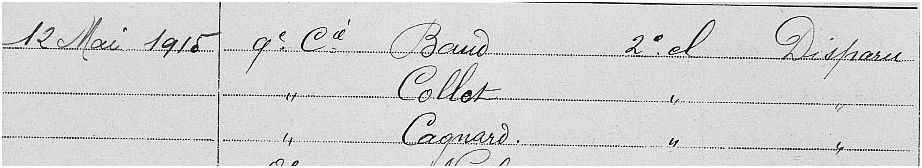 12 Mai 1915 9e Cie Baud 2e cl Disparu
" Collet " "
" Cagnard. " "